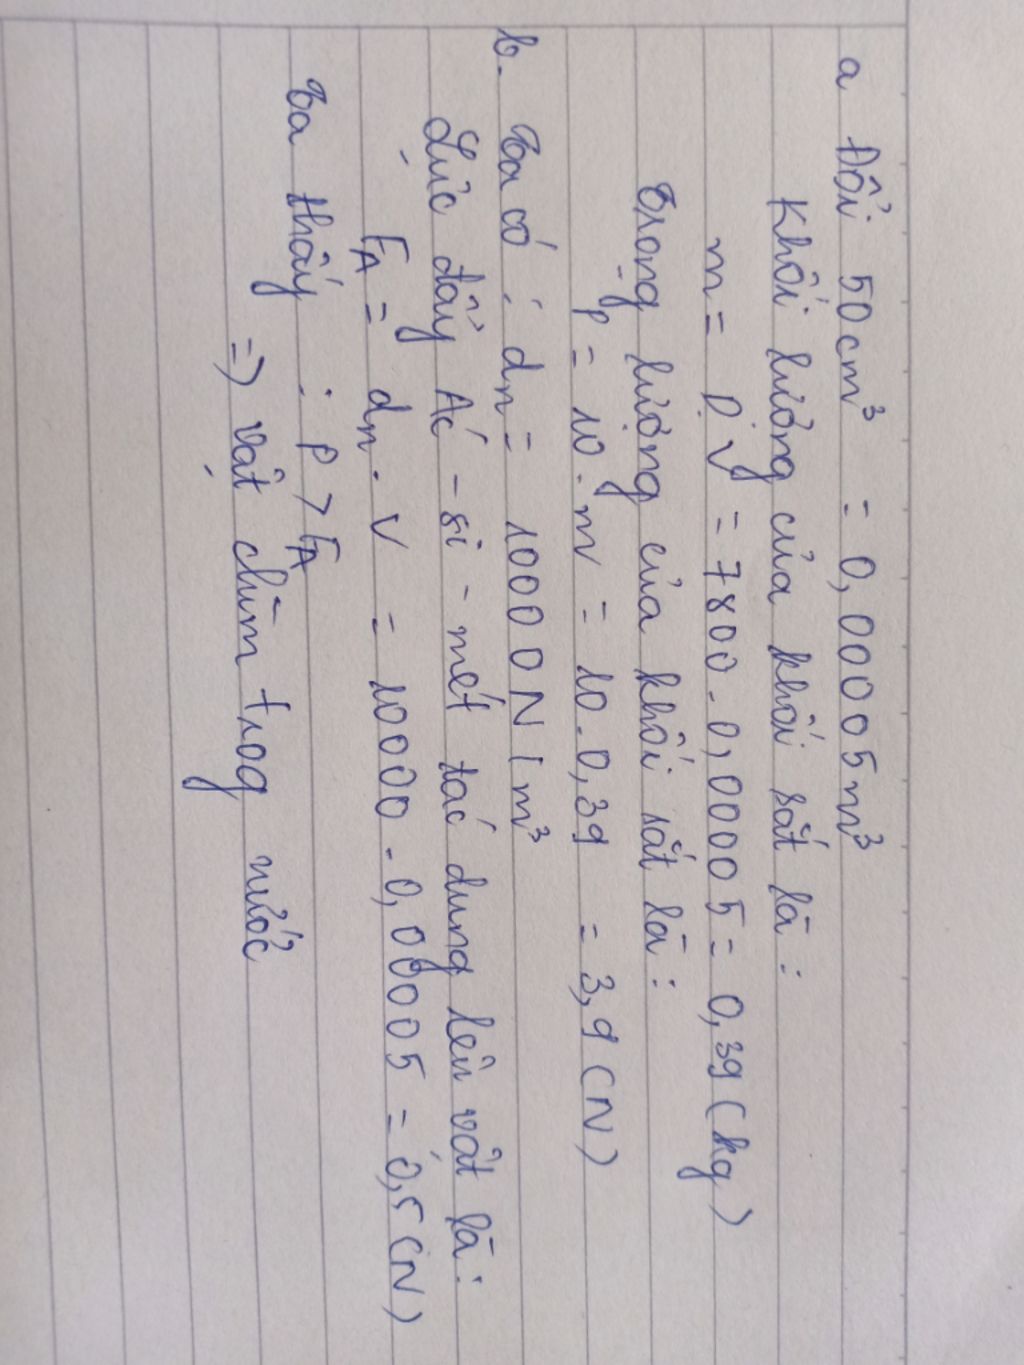 a Đổi 50cm³ = 0,00005m³
Khối lượng của khối sắt là :
m = D.V = 7800.0,00005 = 0,39 (kg)
Trọng lượng của khối sắt là :
P = 10.m = 10.0,39 = 3,9 (N)
b. Ta có : dn = 1000 N/m³
Lực đẩy Ác-si-mét tác dụng lên vật là :
FA = dn.V = 10000.0,00005 = 0,5 (N)
Ta thấy : P > FA
=> vật chìm trog nước